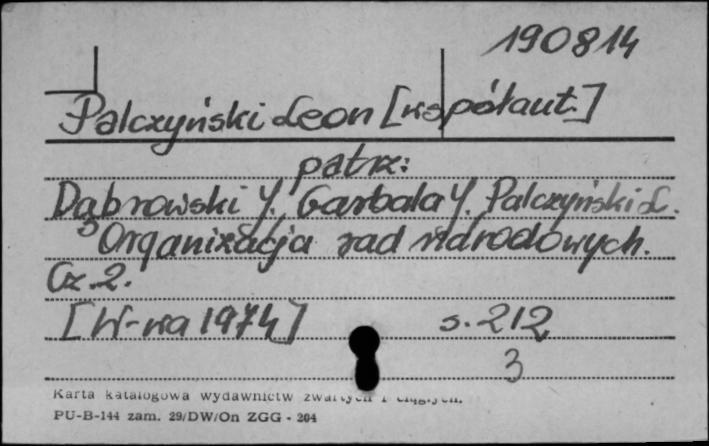 190814
Palczyński Leon [współaut.]
patrz:
Dąbrowski J., Garbala J., Palczyński L.
Organizacja rad narodowych.
Cz. 2.
[W-wa 1974] s. 212
3
Karta katalogowa wydawnictw zwartych i ciągłych.
PU-B-144 zam. 29/DW/On ZGG - 204